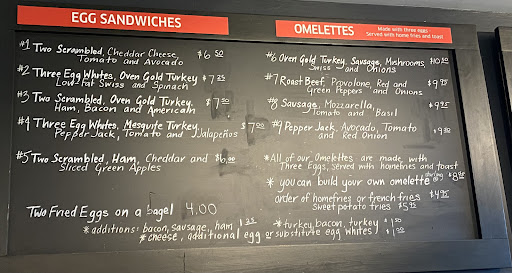 EGG SANDWICHES
#1 Two Scrambled, Cheddar Cheese, $6.50
Tomato and Avocado
#2 Three Egg Whites, Oven Gold Turkey $7.25
Low-fat Swiss and Spinach
#3 Two Scrambled, Oven Gold Turkey, $7.50
Ham, Bacon and American
#4 Three Egg Whites, Mesquite Turkey, $7.00
Pepper Jack, Tomato and Jalapeños
#5 Two Scrambled, Ham, Cheddar and $6.00
Sliced Green Apples
Two Fried Eggs on a bagel 4.00
OMELETTES
Made with three eggs
Served with home fries and toast
#6 Oven Gold Turkey, Sausage, Mushrooms
Swiss and Onions
#7 Roast Beef, Provolone, Red and
Green Peppers and Onions
#8 Sausage, Mozzarella, $9.95
Tomato and Basil
#9 Pepper Jack, Avocado, Tomato
and Red Onion
*All of our Omelettes are made with
Three Eggs, served with homefries and toast
* you can build your own omelette
order of homefries or french fries $4.95
Sweet potato fries $5.95
*additions: bacon, sausage, ham
*turkey bacon, turkey
*cheese, additional egg or substitute egg whites